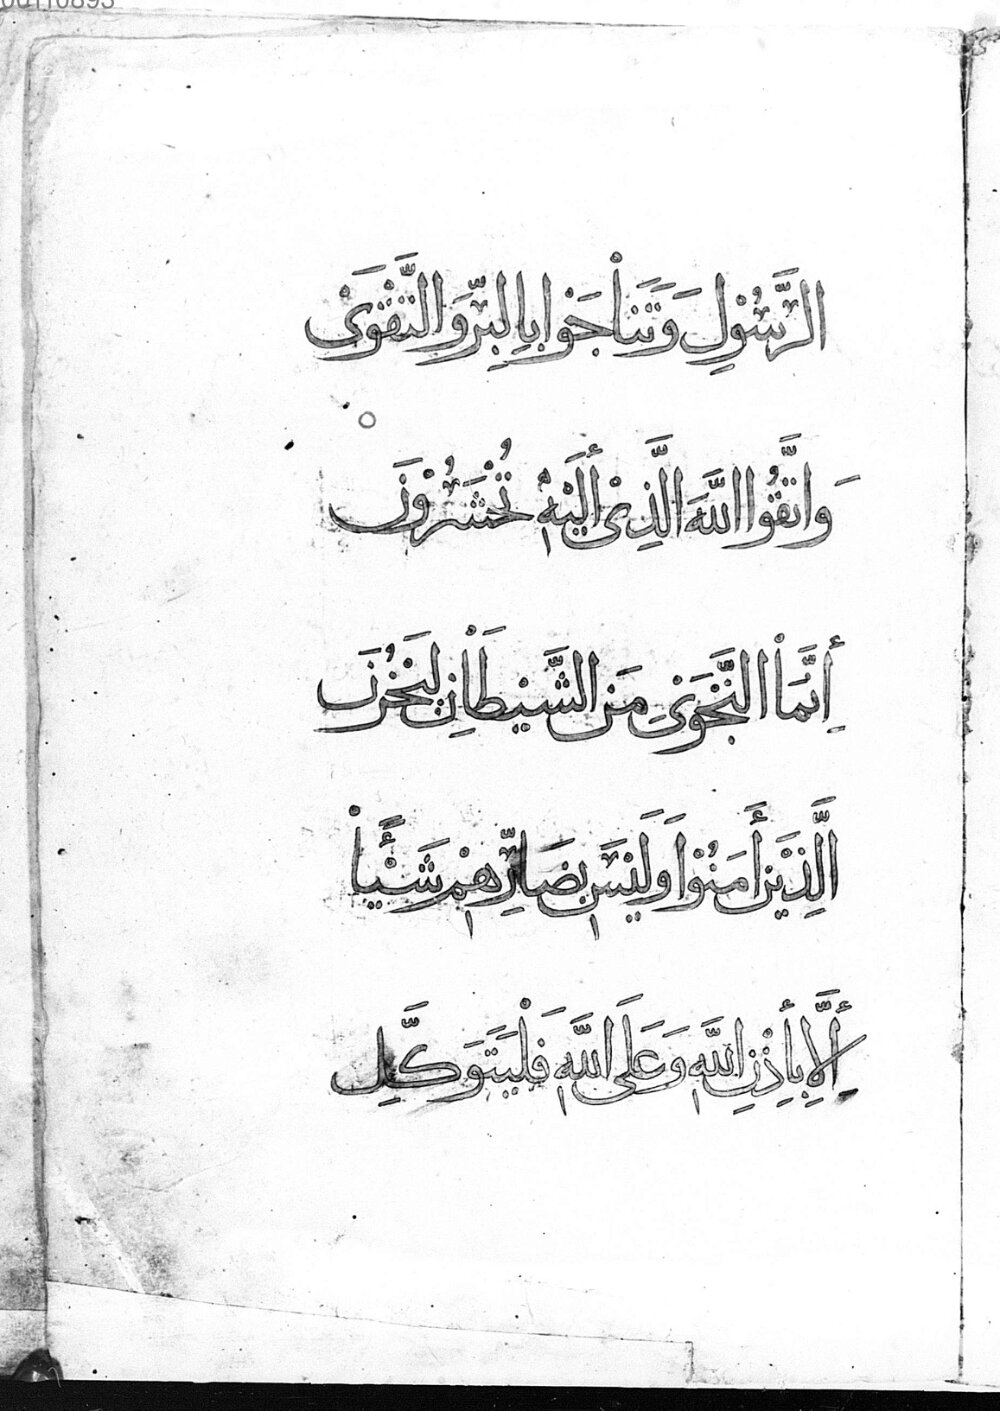 الرَّسُوْلِ وَتَنَاْجَوْا بِالبِرِّ وَالتَّقْوَىْ
وَاتَّقُوا اللَّهَ الَّذِىْ أِلَيْهِ تُحْشَرُوْنَ
أِنَّمَاْ النَّجْوَىْ مِنَ الشَّيْطَاْنِ لِيَحْزُنَ
الَّذِيْنَ أَمَنُوْا وَلَيْسَ بِضَارِّهِمْ شَيْئًاْ
أِلَّا بِأِذْنِ اللَّهِ وَعَلَى اللَّهِ فَلْيَتَوَكَّلِ